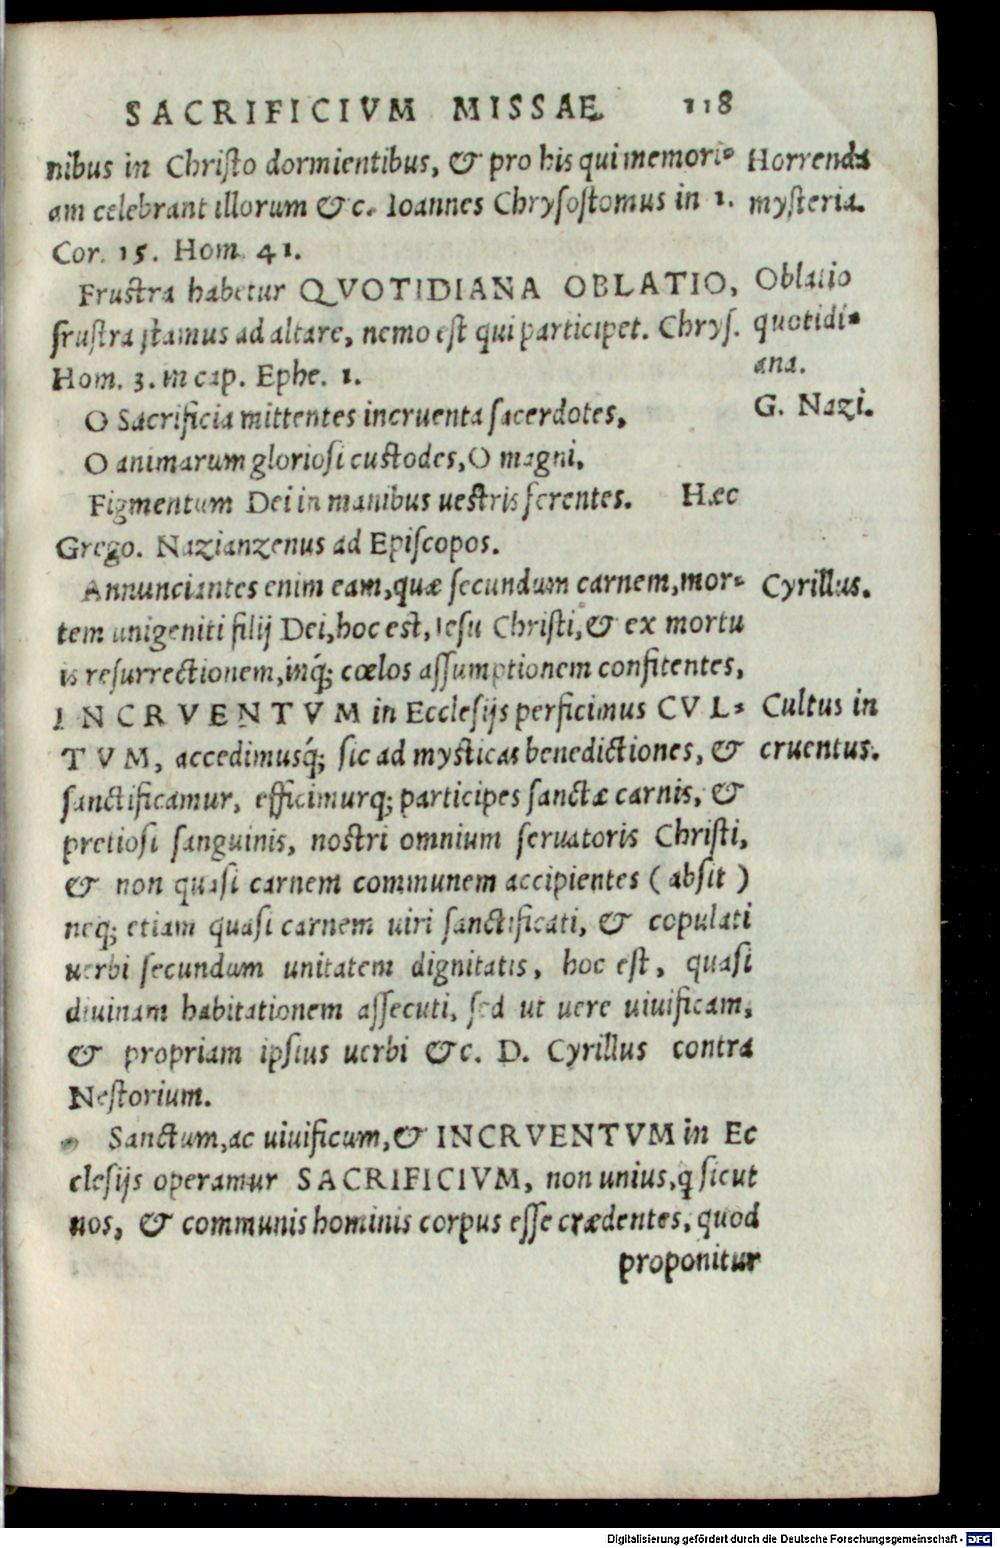 SACRIFICIVM MISSAE 118
nibus in Chriſto dormientibus, & pro his qui memori-
am celebrant illorum &c. Ioannes Chryſoſtomus in 1.
Cor. 15. Hom. 41.
Horrenda
myſteria.
Fruſtra habetur QVOTIDIANA OBLATIO,
fruſtra ſtamus ad altare, nemo eſt qui participet. Chryſ.
Hom. 3. in cap. Ephe. 1.
Oblatio
quotidi-
ana.
O Sacrificia mittentes incruenta ſacerdotes,
O animarum glorioſi cuſtodes, O magni,
Figmentum Dei in manibus ueſtris ferentes. Hæc
Grego. Nazianzenus ad Epiſcopos.
G. Nazi.
Annunciantes enim eam, quæ ſecundum carnem, mor-
tem unigeniti filij Dei, hoc eſt, Ieſu Chriſti, & ex mortu
is reſurrectionem, inq́; cœlos aſſumptionem confitentes,
INCRVENTVM in Eccleſijs perficimus CVL-
TVM, accedimusq́; ſic ad myſticas benedictiones, &
ſanctificamur, efficimurq; participes ſanctæ carnis, &
pretioſi ſanguinis, noſtri omnium ſeruatoris Chriſti,
& non quaſi carnem communem accipientes (abſit)
neq; etiam quaſi carnem uiri ſanctificati, & copulati
uerbi ſecundum unitatem dignitatis, hoc eſt, quaſi
diuinam habitationem aſſecuti, ſed ut uere uiuificam,
& propriam ipſius uerbi &c. D. Cyrillus contra
Neſtorium.
Cyrillus.
Cultus in
cruentus.
Sanctum, ac uiuificum, & INCRVENTVM in Ec
cleſijs operamur SACRIFICIVM, non unius, q̃ ſicut
nos, & communis hominis corpus eſſe crædentes, quod
proponitur
Digitalisierung gefördert durch die Deutsche Forschungsgemeinschaft - DFG